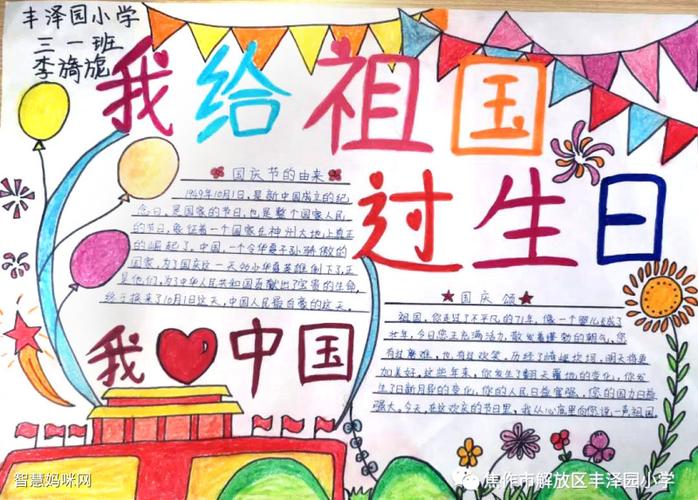 丰泽园小学
三一班
李旖旎
我给祖国
过生日
国庆节的由来
1949年10月1日,是新中国成立的纪
念日,是国家的节日,也是整个国家人民
的节日,象征着一个国家在神州大地上真正
的崛起了,中国,一个令华夏子孙骄傲的
国家,为了国庆这一天多少华夏英雄倒下了,正
是他们,为了中华人民共和国贡献出了宝贵的生命,
终于换来了10月1日这天,中国人民最自豪的这天。
国庆颂
祖国,你走过了不平凡的71年,像一个婴儿长成了
壮年,今日您正充满活力,散发着蓬勃的朝气,您
有过磨难,也有过欢笑,历经了崎岖坎坷,明天将更
加美好,这些年来,你发生了翻天覆地的变化,你发
生了日新月异的变化,你的人民日益富强,您的国力日益
强大。今天在这欢庆的节日里,我从心底里向您说一声祖国
我中国
智慧妈咪网
焦作市解放区丰泽园小学